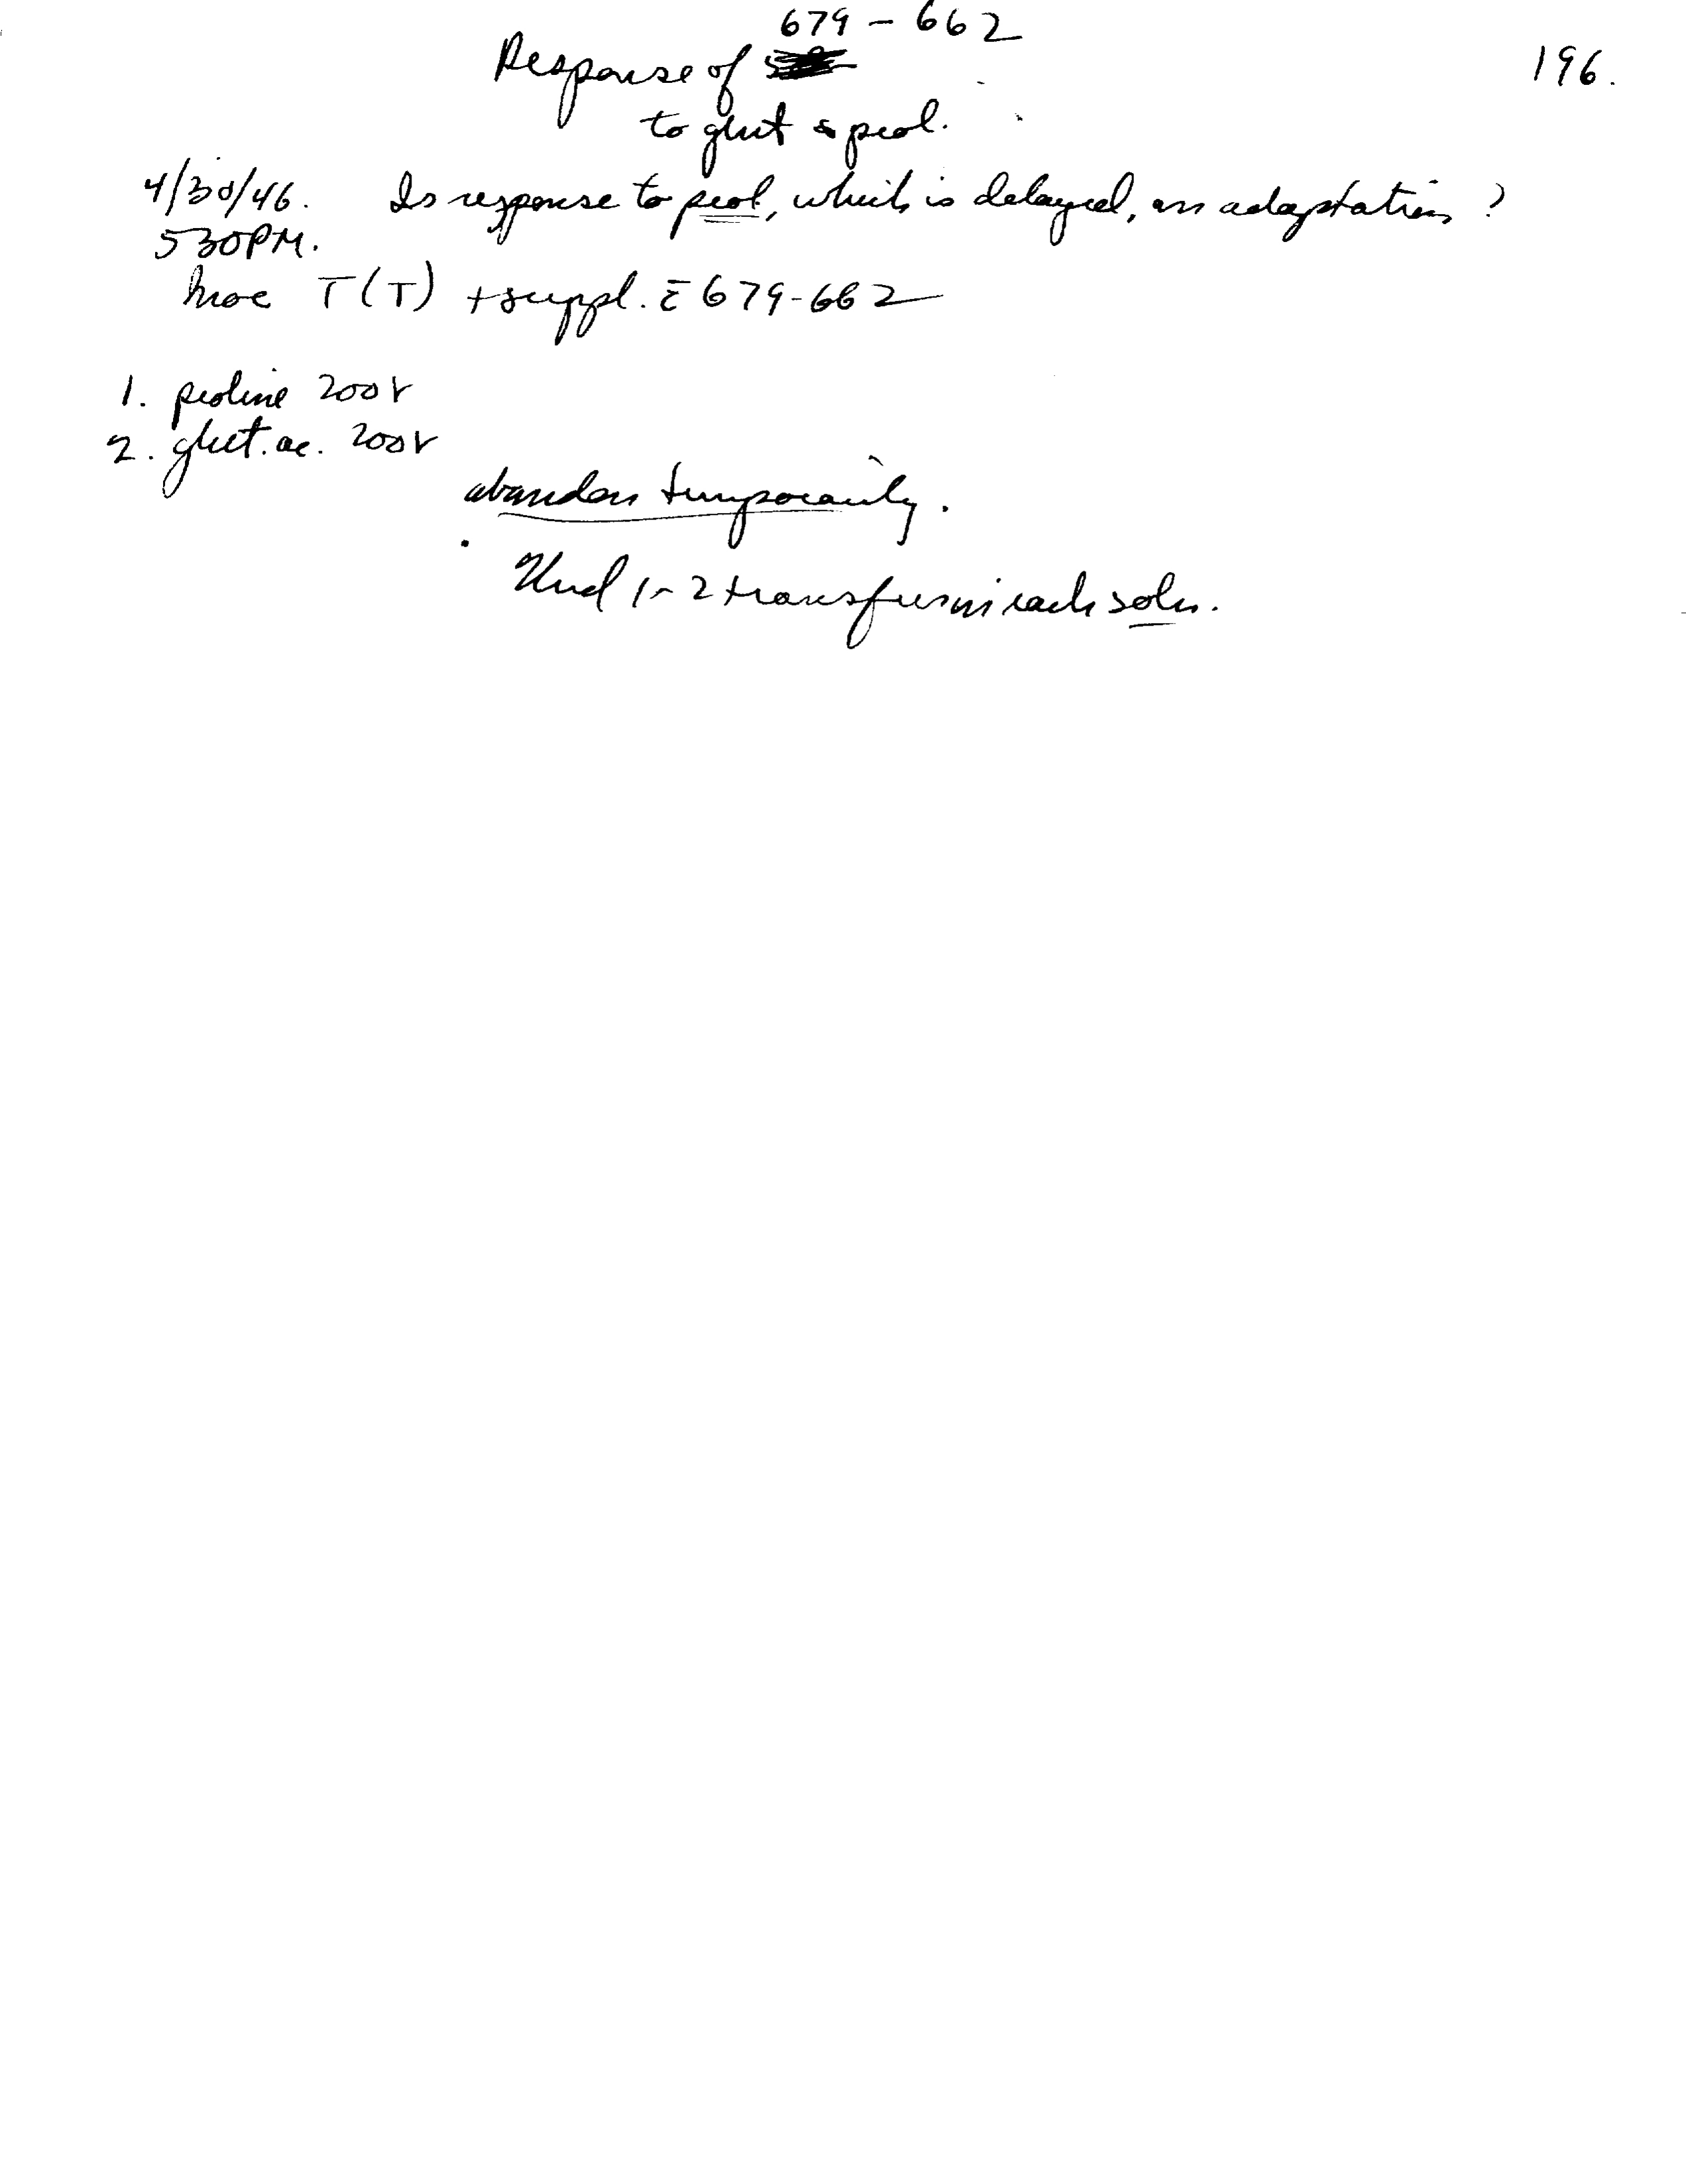 679 - 662
196.
Response of
to glut & prol.
4/30/46. Is response to prol, which is delayed, an adaptation?
530PM.
Inoc T(T) + suppl. c̄ 679-662
1. proline 200γ
2. glut. ac. 200γ
abandon temporarily.
1-2 transfers in each soln.